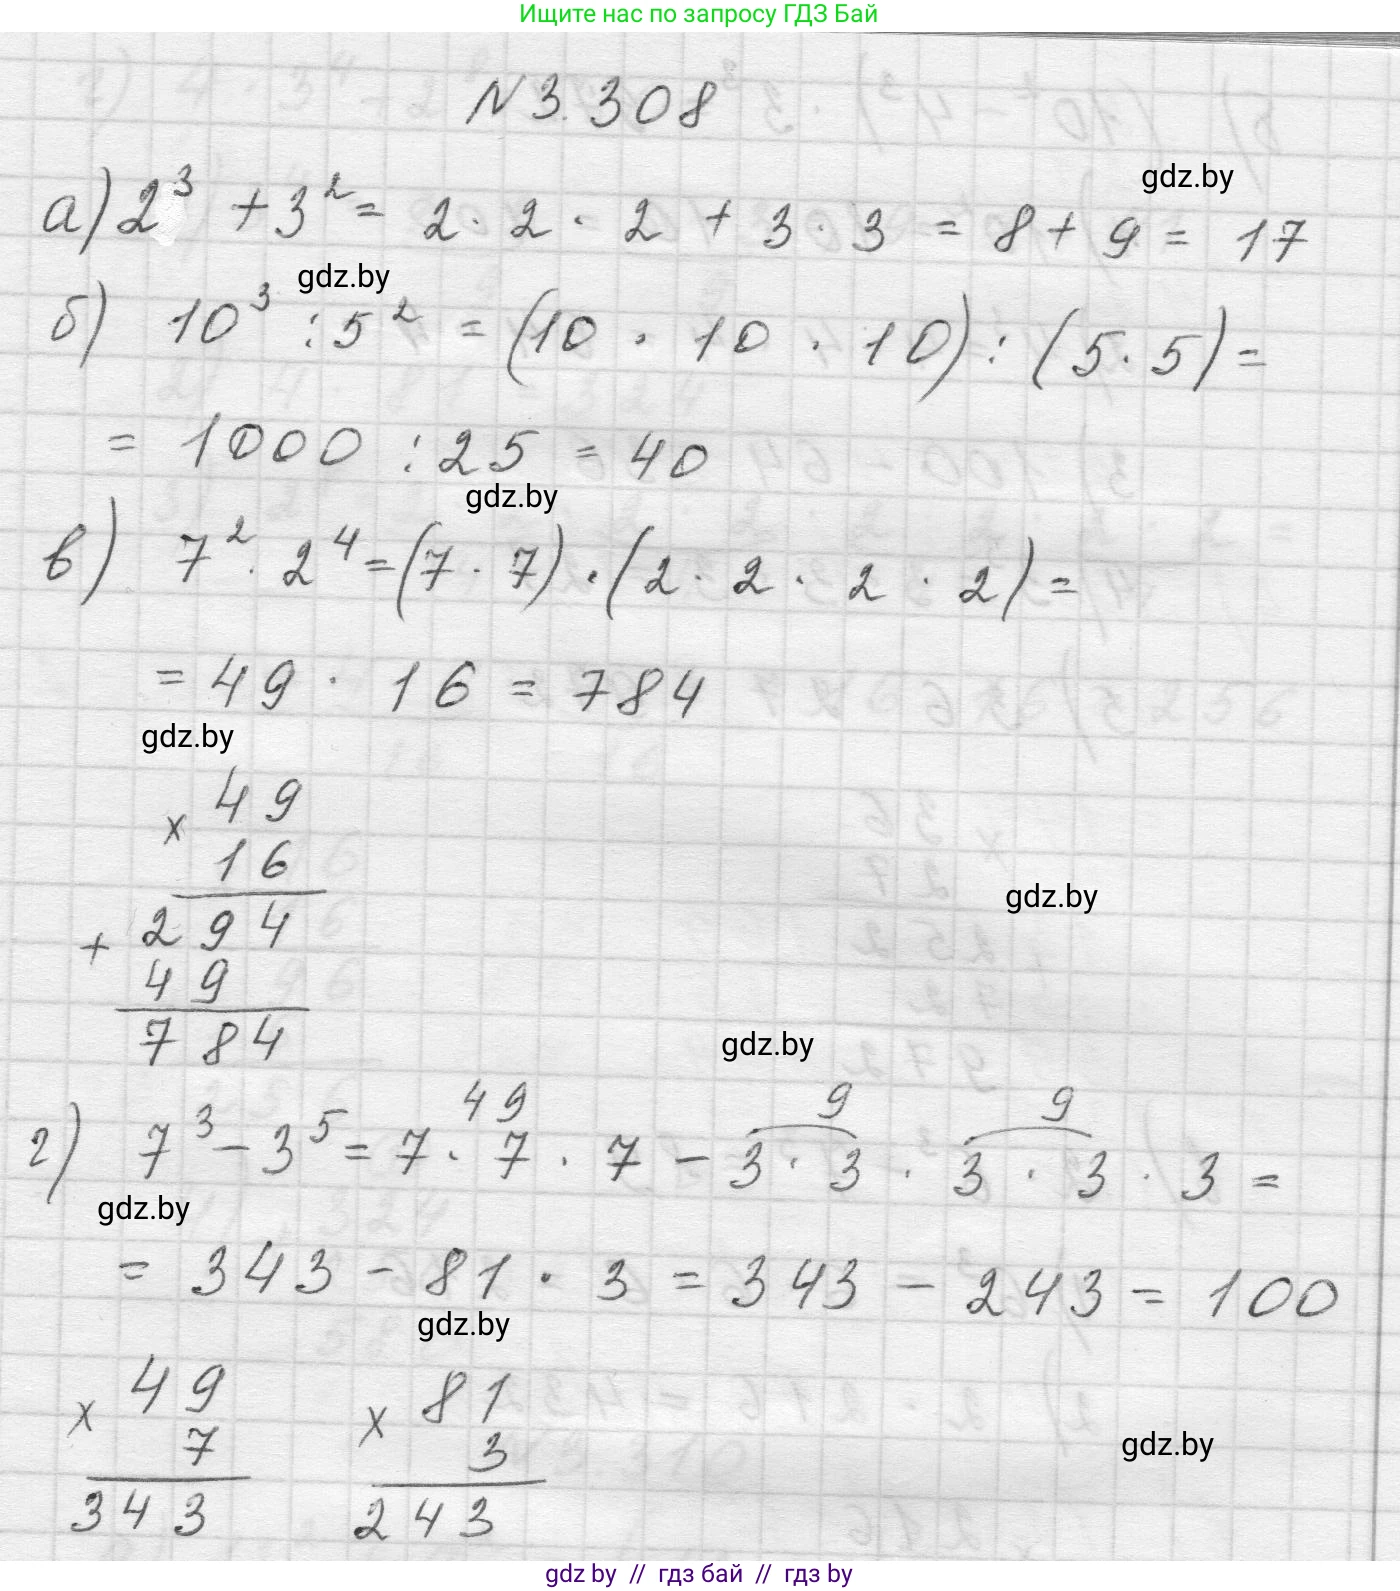 Ищите нас по запросу ГДЗ Бай
N 3.308
gdz.by
а) 2³ + 3² = 2 · 2 · 2 + 3 · 3 = 8 + 9 = 17
gdz.by
б) 10³ : 5² = (10 · 10 · 10) : (5 · 5) =
= 1000 : 25 = 40
gdz.by
в) 7² · 2⁴ = (7 · 7) · (2 · 2 · 2 · 2) =
= 49 · 16 = 784
gdz.by
× 49
16
gdz.by
+ 294
49
784
gdz.by
49 9 9
г) 7³ - 3⁵ = 7 · 7 · 7 - 3 · 3 · 3 · 3 · 3 =
gdz.by
= 343 - 81 · 3 = 343 - 243 = 100
gdz.by
× 49 × 81
7 3
gdz.by
343 243
gdz by // гдз бай // гдз by